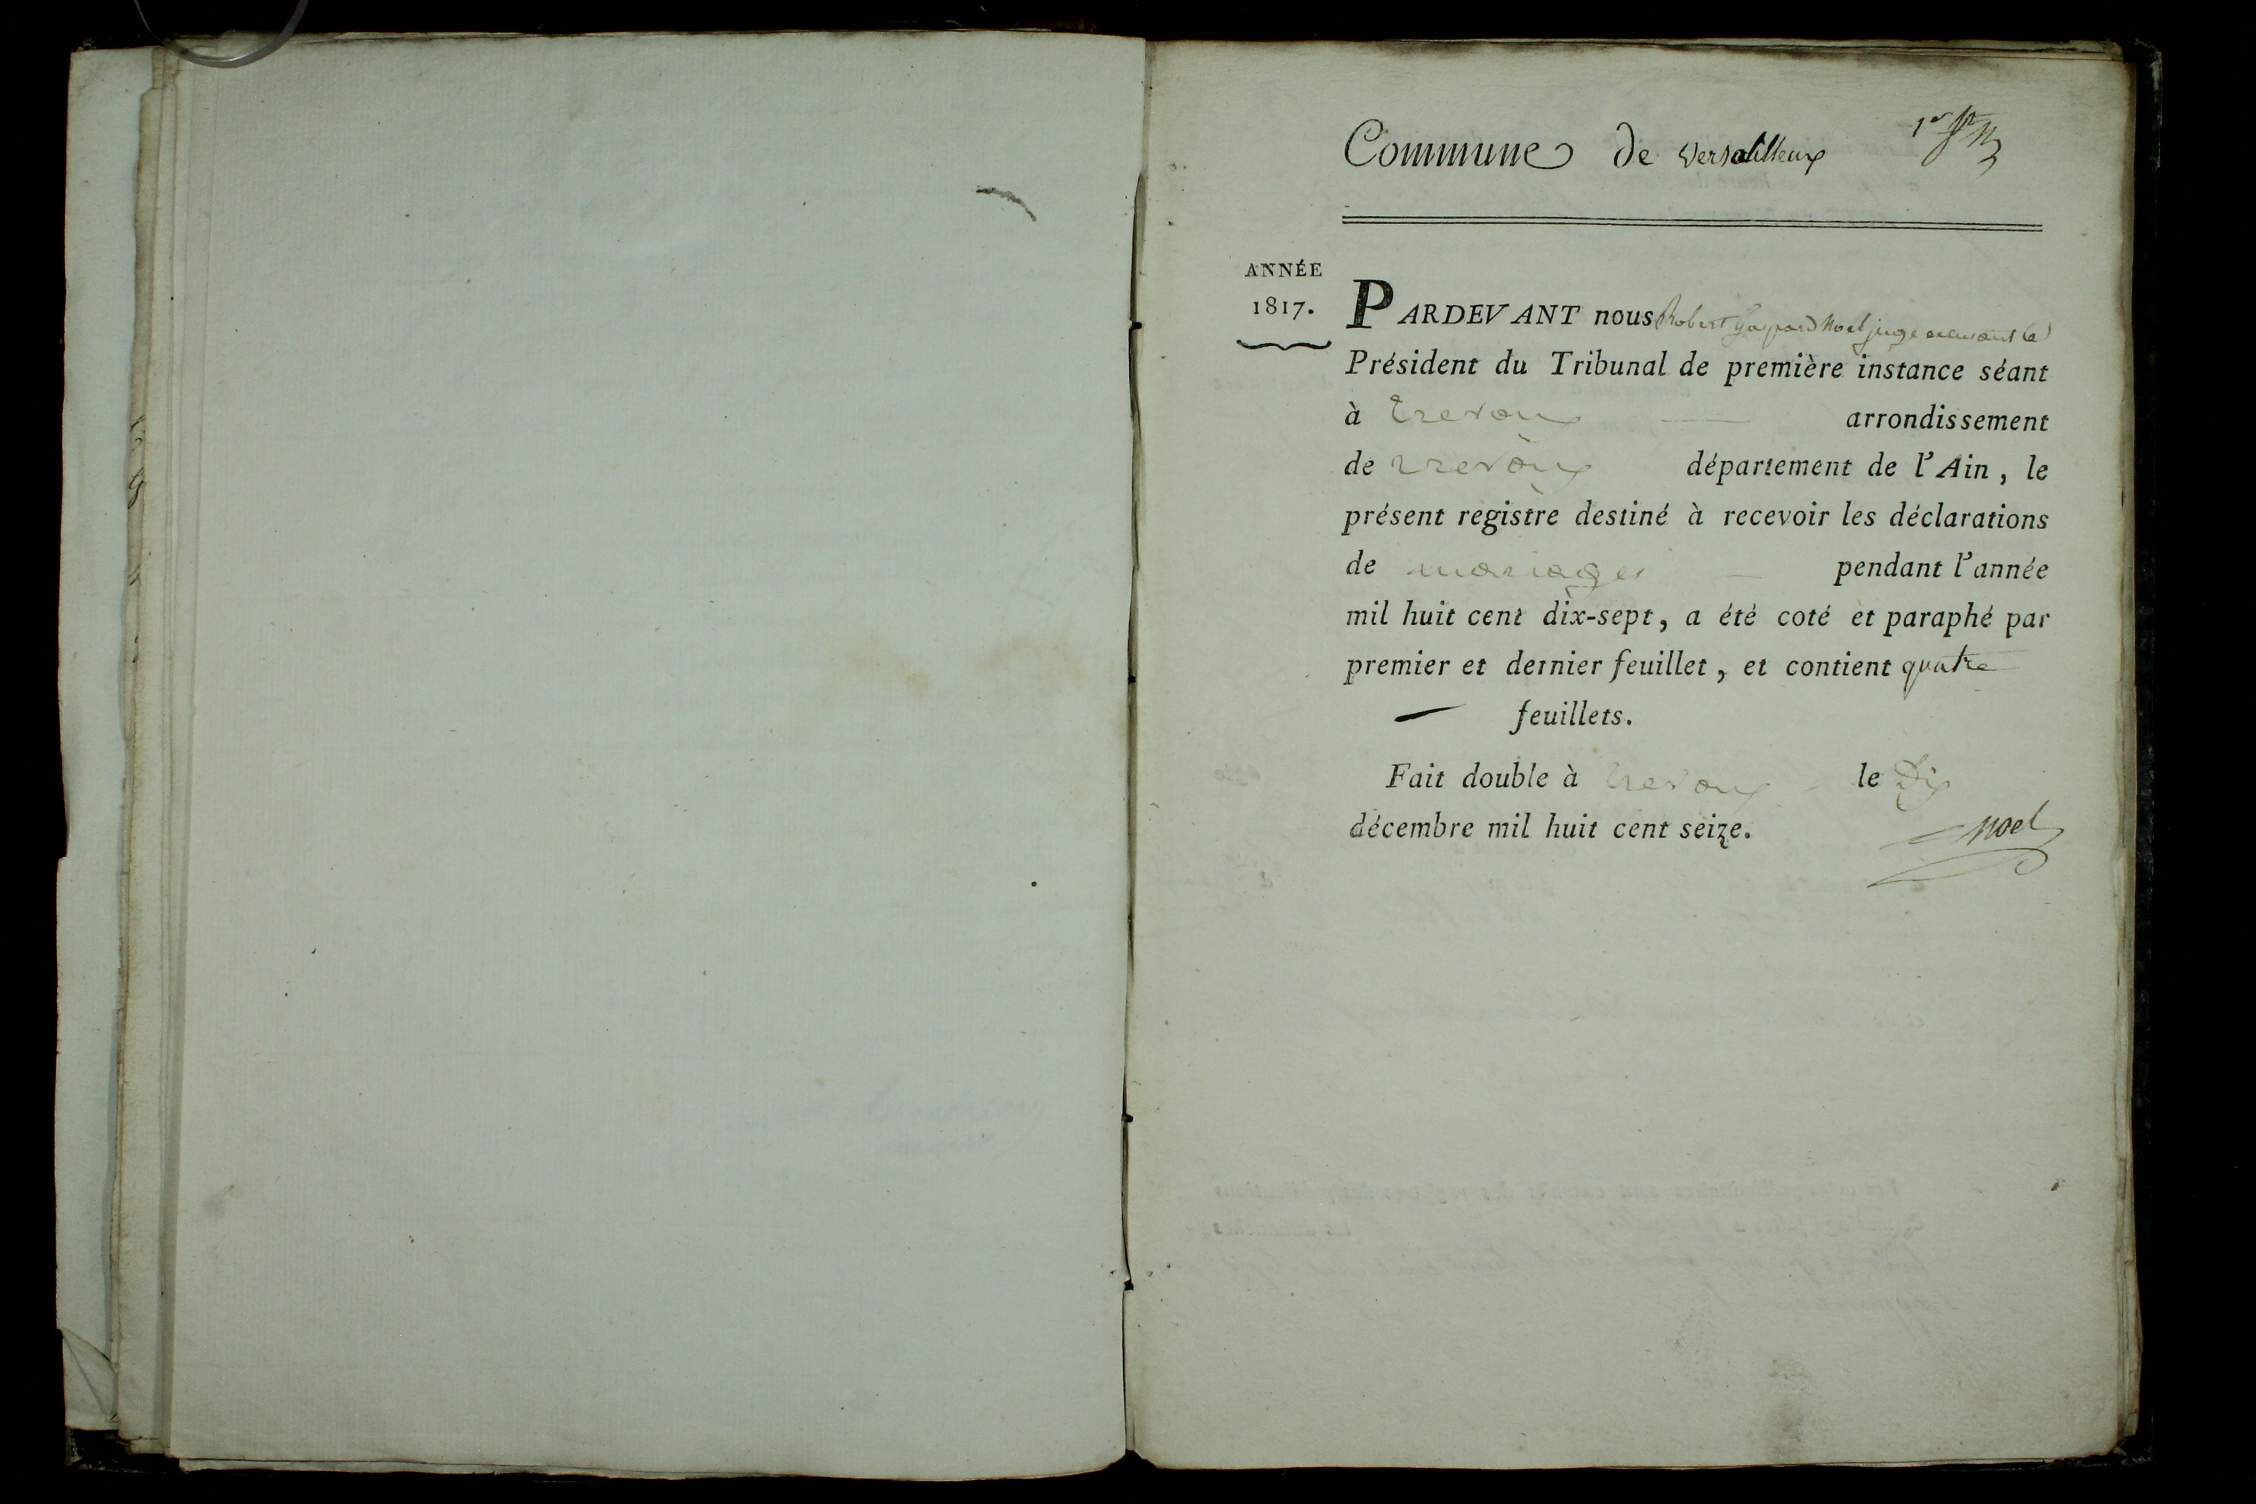 Commune de Versailleux
1er ft
ANNÉE
1817.
PARDEVANT nous Robert Gaspard Noel juge suivant le
Président du Tribunal de première instance séant
à Trevoux arrondissement
de Trevoux département de l'Ain, le
présent registre destiné à recevoir les déclarations
de mariages pendant l'année
mil huit cent dix-sept, a été coté et paraphé par
premier et dernier feuillet, et contient quatre
feuillets.
Fait double à Trevoux le Dix
décembre mil huit cent seize.
Noel